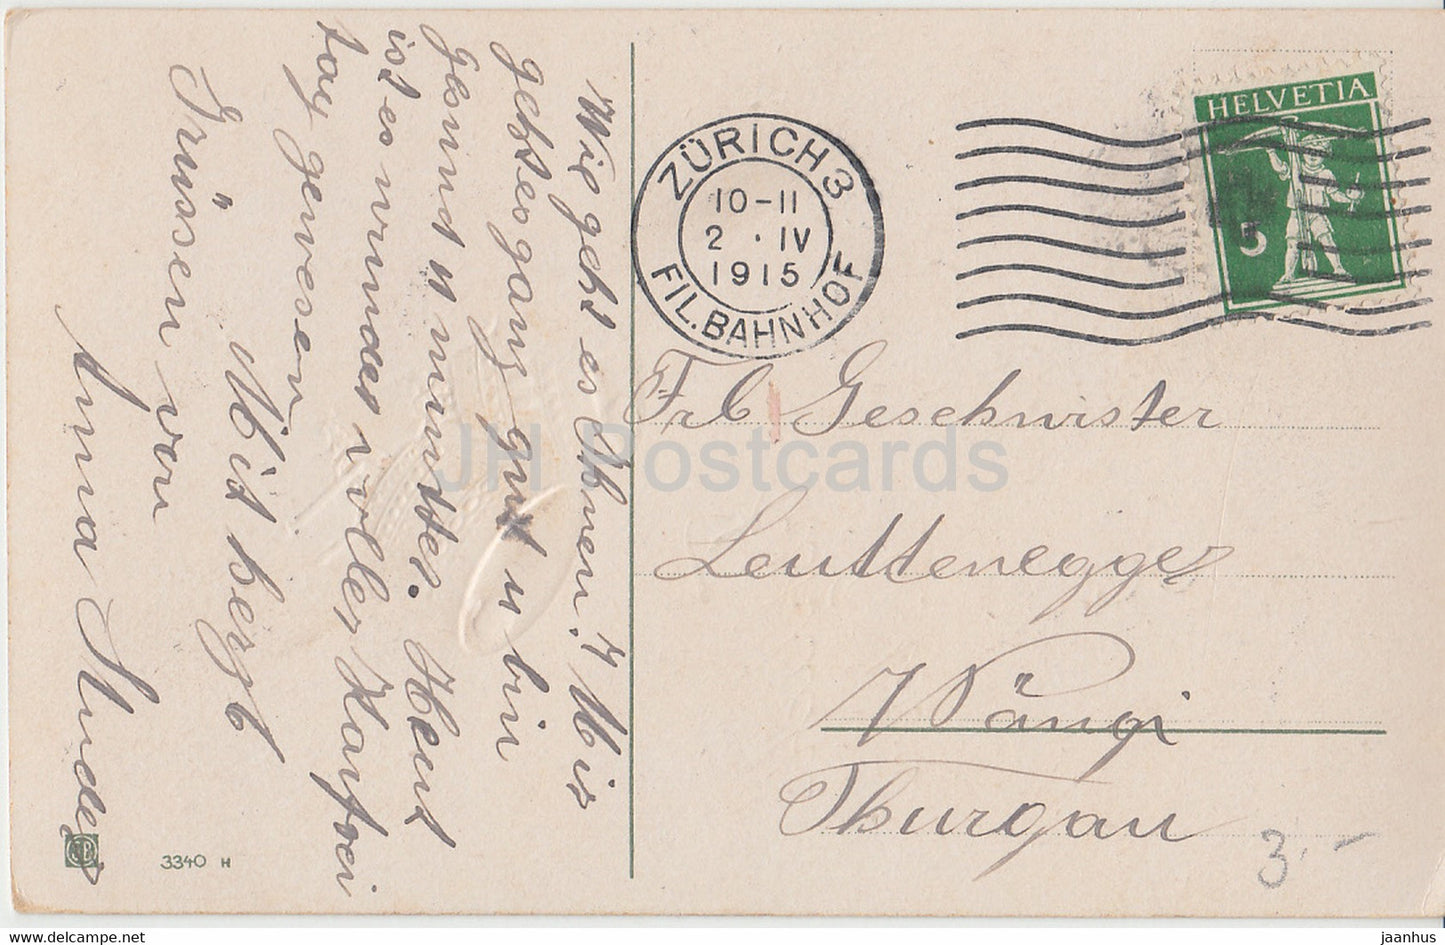 Wie geht es Ihnen? Mir
geht es ganz gut u bin
gesund u munter. Heut
ist es wieder voller Karfrei
tag gewesen
Mit hergl
Grüssen von
Anna
3340 H
ZÜRICH 3
10-11
2 . IV
1915
FIL. BAHNHOF
HELVETIA
5
Frl Geschwister
Leuttenegger
Wängi
Thurgau
3.-
JH Postcards
jaanhus - hip.com